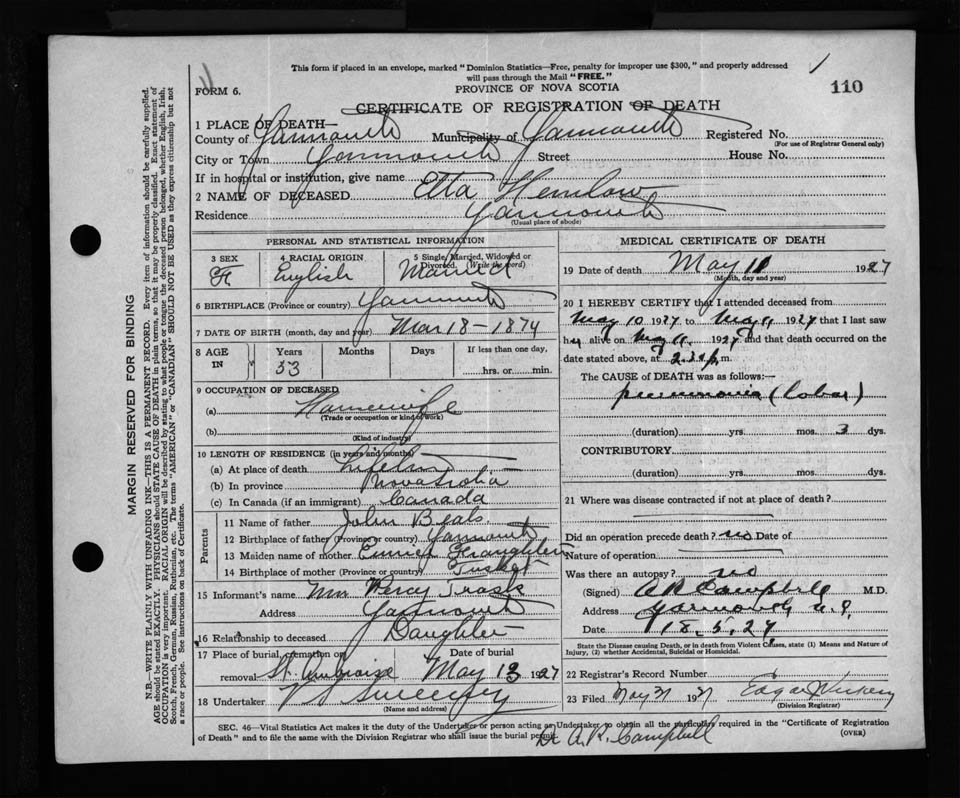 This form if placed in an envelope, marked "Dominion Statistics—Free, penalty for improper use $300," and properly addressed
will pass through the Mail "FREE."
110
FORM 6.
PROVINCE OF NOVA SCOTIA
CERTIFICATE OF REGISTRATION OF DEATH
1 PLACE OF DEATH—
County of Yarmouth Municipality of Yarmouth Registered No.
(For use of Registrar General only)
City or Town Yarmouth Street House No.
If in hospital or institution, give name
2 NAME OF DECEASED Etta Hemlow
Residence Yarmouth
(Usual place of abode)
PERSONAL AND STATISTICAL INFORMATION
3 SEX 4 RACIAL ORIGIN English 5 Single, Married, Widowed or Divorced. (Write the word) Married
6 BIRTHPLACE (Province or country) Yarmouth
7 DATE OF BIRTH (month, day and year) Mar 18 - 1874
8 AGE IN Years 53 Months Days If less than one day, hrs. or min.
9 OCCUPATION OF DECEASED
(a) Housewife
(Trade or occupation or kind of work)
(b)
(Kind of industry)
10 LENGTH OF RESIDENCE (in years and months)
(a) At place of death Lifetime
(b) In province Nova Scotia
(c) In Canada (if an immigrant) Canada
Parents
11 Name of father John Beals
12 Birthplace of father (Province or country) Yarmouth
13 Maiden name of mother
14 Birthplace of mother (Province or country) Tusket
15 Informant's name Mrs Percy Trask
Address Yarmouth
16 Relationship to deceased Daughter
17 Place of burial, cremation or removal St. Ambroise Date of burial May 13 1927
18 Undertaker V S Sweeney
(Name and address)
MEDICAL CERTIFICATE OF DEATH
19 Date of death May 11 1927
(Month, day and year)
20 I HEREBY CERTIFY that I attended deceased from
May 10 1927 to May 11 1927 that I last saw
her alive on May 11 1927 and that death occurred on the
date stated above, at m.
The CAUSE of DEATH was as follows:—
pneumonia (lobar)
(duration) yrs. mos. 3 dys.
CONTRIBUTORY
(duration) yrs. mos. dys.
21 Where was disease contracted if not at place of death?
Did an operation precede death? no Date of
Nature of operation
Was there an autopsy? no
(Signed) A R Campbell M.D.
Address Yarmouth N.S.
Date 18.5.27
State the Disease causing Death, or in death from Violent Causes, state (1) Means and Nature of
Injury, (2) whether Accidental, Suicidal or Homicidal.
22 Registrar's Record Number
23 Filed May 31 1927 Edgar
(Division Registrar)
SEC. 46—Vital Statistics Act makes it the duty of the Undertaker or person acting as Undertaker to obtain all the particulars required in the "Certificate of Registration
of Death" and to file the same with the Division Registrar who shall issue the burial permit.
(OVER)
Dr A.R. Campbell
MARGIN RESERVED FOR BINDING
N.B.—WRITE PLAINLY WITH UNFADING INK—THIS IS A PERMANENT RECORD. Every item of information should be carefully supplied.
AGE should be stated EXACTLY. PHYSICIANS should STATE CAUSE OF DEATH in plain terms, so that it may be properly classified. Exact statement of
OCCUPATION is very important. RACIAL ORIGIN will be described by stating to what people or tongue the deceased person belonged, whether English, Irish,
Scotch, French, German, Russian, Ruthenian, etc. The terms "AMERICAN" or "CANADIAN" SHOULD NOT BE USED as they express citizenship but not
a race or people. See instructions on back of Certificate.